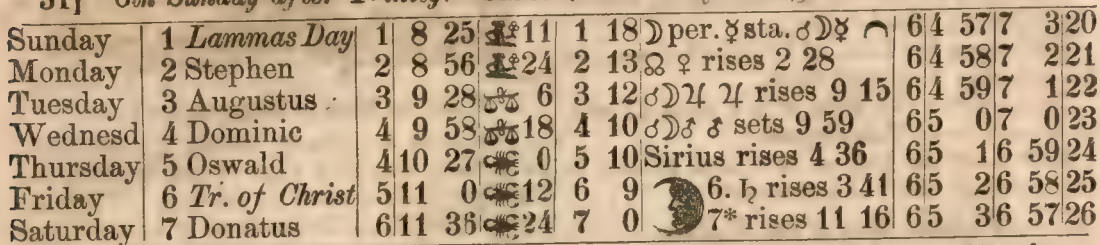 Sunday 1 Lammas Day 1 8 25 11 1 18 ☽ per. ☿ sta. ☌☽☿ 6 4 57 7 3 20
Monday 2 Stephen 2 8 56 24 2 13 ☊ ♀ rises 2 28 6 4 58 7 2 21
Tuesday 3 Augustus 3 9 28 6 3 12 ☌☽♃ ♃ rises 9 15 6 4 59 7 1 22
Wednesd 4 Dominic 4 9 58 18 4 10 ☌☽♂ ♂ sets 9 59 6 5 0 7 0 23
Thursday 5 Oswald 4 10 27 0 5 10 Sirius rises 4 36 6 5 1 6 59 24
Friday 6 Tr. of Christ 5 11 0 12 6 9 6. ♄ rises 3 41 6 5 2 6 58 25
Saturday 7 Donatus 6 11 36 24 7 0 7* rises 11 16 6 5 3 6 57 26